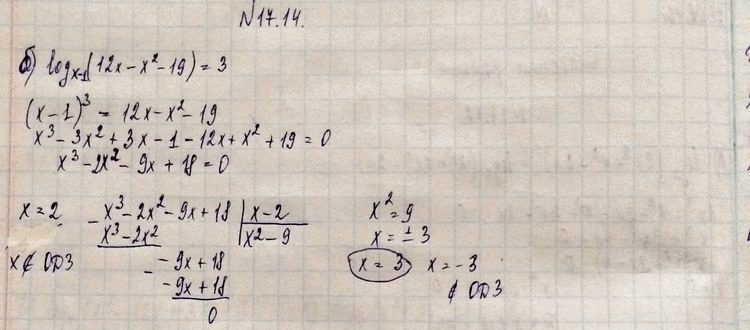 №17.14.
б) log_{x-1}(12x - x² - 19) = 3
(x - 1)³ = 12x - x² - 19
x³ - 3x² + 3x - 1 - 12x + x² + 19 = 0
x³ - 2x² - 9x + 18 = 0
x = 2
x ∉ ОДЗ
- x³ - 2x² - 9x + 18 | x - 2
x³ - 2x² | x² - 9
- - 9x + 18
- 9x + 18
0
x² = 9
x = ± 3
x = 3 x = -3
∉ ОДЗ